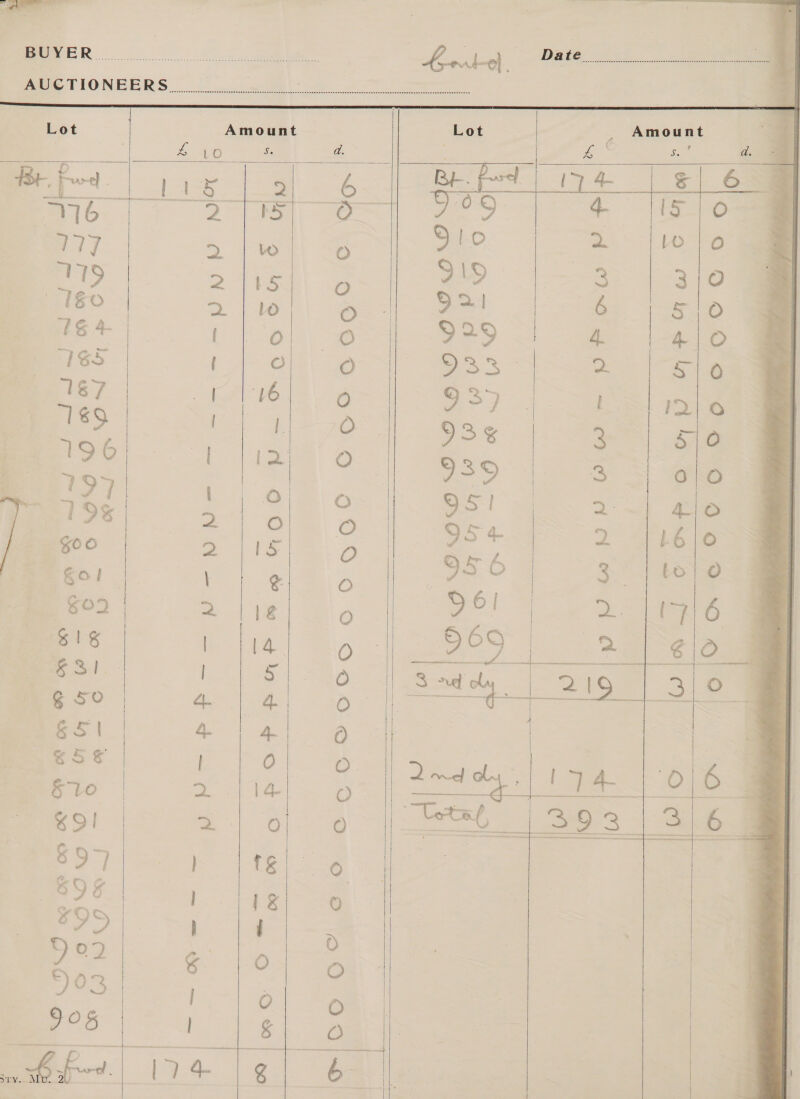 BUYER Contd. Date
AUCTIONEERS
Lot Amount Lot Amount
£ 10 s. d. £ s. d.
Bt. fwd. 118 2 6 Bt. fwd 174 8 6
776 2 15 0 909 4 15 0
777 2 10 0 910 2 10 0
779 2 15 0 919 3 3 0
780 2 10 0 921 6 5 0
784 1 0 0 929 4 4 0
785 1 0 0 933 2 5 0
787 1 16 0 937 1 12 0
789 1 1 0 938 3 5 0
796 1 12 0 939 3 0 0
797 1 0 0 951 2 4 0
798 2 0 0 954 2 16 0
800 2 15 0 956 3 10 0
801 1 8 0 961 2 17 6
802 2 18 0 969 2 8 0
818 1 14 0
831 1 5 0 3rd dy. 219 3 0
850 4 4 0
851 4 4 0
858 1 0 0 2nd dy. 174 0 6
870 2 14 0
891 2 0 0 Total 393 3 6
897 1 18 0
898 1 18 0
899 1 1 0
902 8 0 0
903 1 0 0
908 1 8 0
C. fwd. 174 8 6